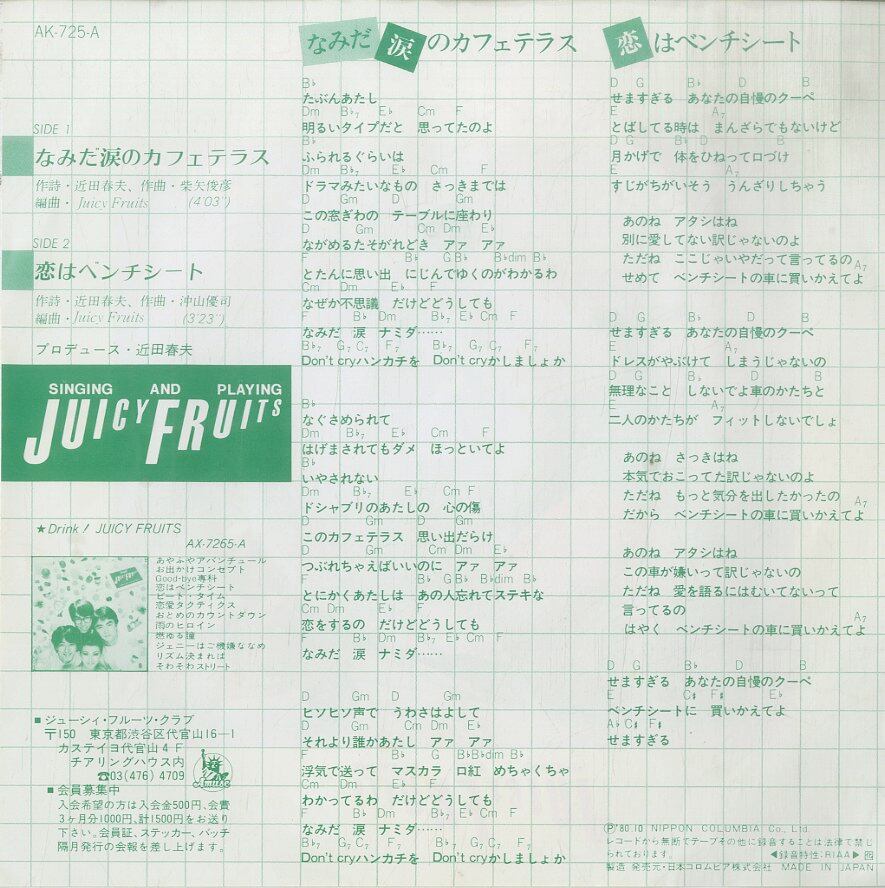 AK-725-A
SIDE 1
なみだ"涙のカフェテラス
作詩・近田春夫、作曲・柴矢俊彦
編曲・Juicy Fruits (4'03")
SIDE 2
恋はベンチシート
作詩・近田春夫、作曲・沖山優司
編曲・Juicy Fruits (3'23")
プロデュース・近田春夫
SINGING AND PLAYING
JUICY FRUITS
★Drink! JUICY FRUITS
AX-7265-A
あやふやアバンチュール
お出かけコンセプト
Good-bye専科
恋はベンチシート
ビート・タイム
恋愛タクティクス
おとめのカウントダウン
雨のヒロイン
燃ゆる瞳
ジェニーはご機嫌ななめ
リズム決まれば
そわそわストリート
■ジューシィ・フルーツ・クラブ
〒150 東京都渋谷区代官山16-1
カステイヨ代官山4F
チアリングハウス内
☎03(476)4709
■会員募集中
入会希望の方は入会金500円、会費
3ヶ月分1000円、計1500円をお送り
下さい。会員証、ステッカー、バッチ
隔月発行の会報を差し上げます。
なみだ 涙のカフェテラス
B♭
たぶんあたし
Dm B♭7 E♭ Cm F
明るいタイプだと 思ってたのよ
B♭
ふられるぐらいは
Dm B♭7 E♭ Cm F
ドラマみたいなもの さっきまでは
D Gm D Gm
この窓ぎわの テーブルに座わり
D Gm Cm Dm E♭
ながめるたそがれどき アァ アァ
F B♭ G B♭ B♭dim B♭
とたんに思い出 にじんでゆくのがわかるわ
Cm Dm E♭ F
なぜか不思議 だけどどうしても
F B♭ Dm B♭7 E♭ Cm F
なみだ 涙 ナミダ……
B♭7 G7 C7 F7 B♭7 G7 C7 F7
Don't cryハンカチを Don't cryかしましょか
B♭
なぐさめられて
Dm B♭7 E♭ Cm F
はげまされてもダメ ほっといてよ
B♭
いやされない
Dm B♭7 E♭ Cm F
ドシャブリのあたしの 心の傷
D Gm D Gm
このカフェテラス 思い出だらけ
D Gm Cm Dm E♭
つぶれちゃえばいいのに アァ アァ
F B♭ G B♭ B♭dim B♭
とにかくあたしは あの人忘れてステキな
Cm Dm E♭ F
恋をするの だけどどうしても
F B♭ Dm B♭7 E♭ Cm F
なみだ 涙 ナミダ……
D Gm D Gm
ヒソヒソ声で うわさはよして
D Gm Cm Dm E♭
それより誰かあたし アァ アァ
F B♭ G B♭B♭dim B♭
浮気で送って マスカラ 口紅 めちゃくちゃ
Cm Dm E♭ F
わかってるわ だけどどうしても
F B♭ Dm B♭7 E♭ Cm F
なみだ 涙 ナミダ……
B♭7 G7 C7 F7 B♭7 G7 C7 F7
Don't cryハンカチを Don't cryかしましょか
恋はベンチシート
D G B♭ D B
せますぎる あなたの自慢のクーペ
E A7
とばしてる時は まんざらでもないけど
D G B♭ D B
月かげで 体をひねって口づけ
E A7
すじがちがいそう うんざりしちゃう
あのね アタシはね
別に愛してない訳じゃないのよ
ただね ここじゃいやだって言ってるの
A7
せめて ベンチシートの車に買いかえて
D G B♭ D B
せますぎる あなたの自慢のクーペ
E A7
ドレスがやぶけて しまうじゃないの
D G B♭ D B
無理なこと しないでよ車のかたちと
E A7
二人のかたちが フィットしないでしょ
あのね さっきはね
本気でおこってた訳じゃないのよ
ただね もっと気分を出したかったの
A7
だから ベンチシートの車に買いかえてよ
あのね アタシはね
この車が嫌いって訳じゃないの
ただね 愛を語るにはむいてないって
言ってるの
A7
はやく ベンチシートの車に買いかえてよ
D G B♭ D B
せますぎる あなたの自慢のクーペ
E C♯ F♯ E♭
ベンチシートに 買いかえてよ
A♭ C♯ F♯
せますぎる
Ⓟ'80.10 NIPPON COLUMBIA Co., Ltd.
レコードから無断でテープその他に録音することは法律で禁じ
られております。 ◀録音特性:RIAA▶
製造 発売元・日本コロムビア株式会社 MADE IN JAPAN